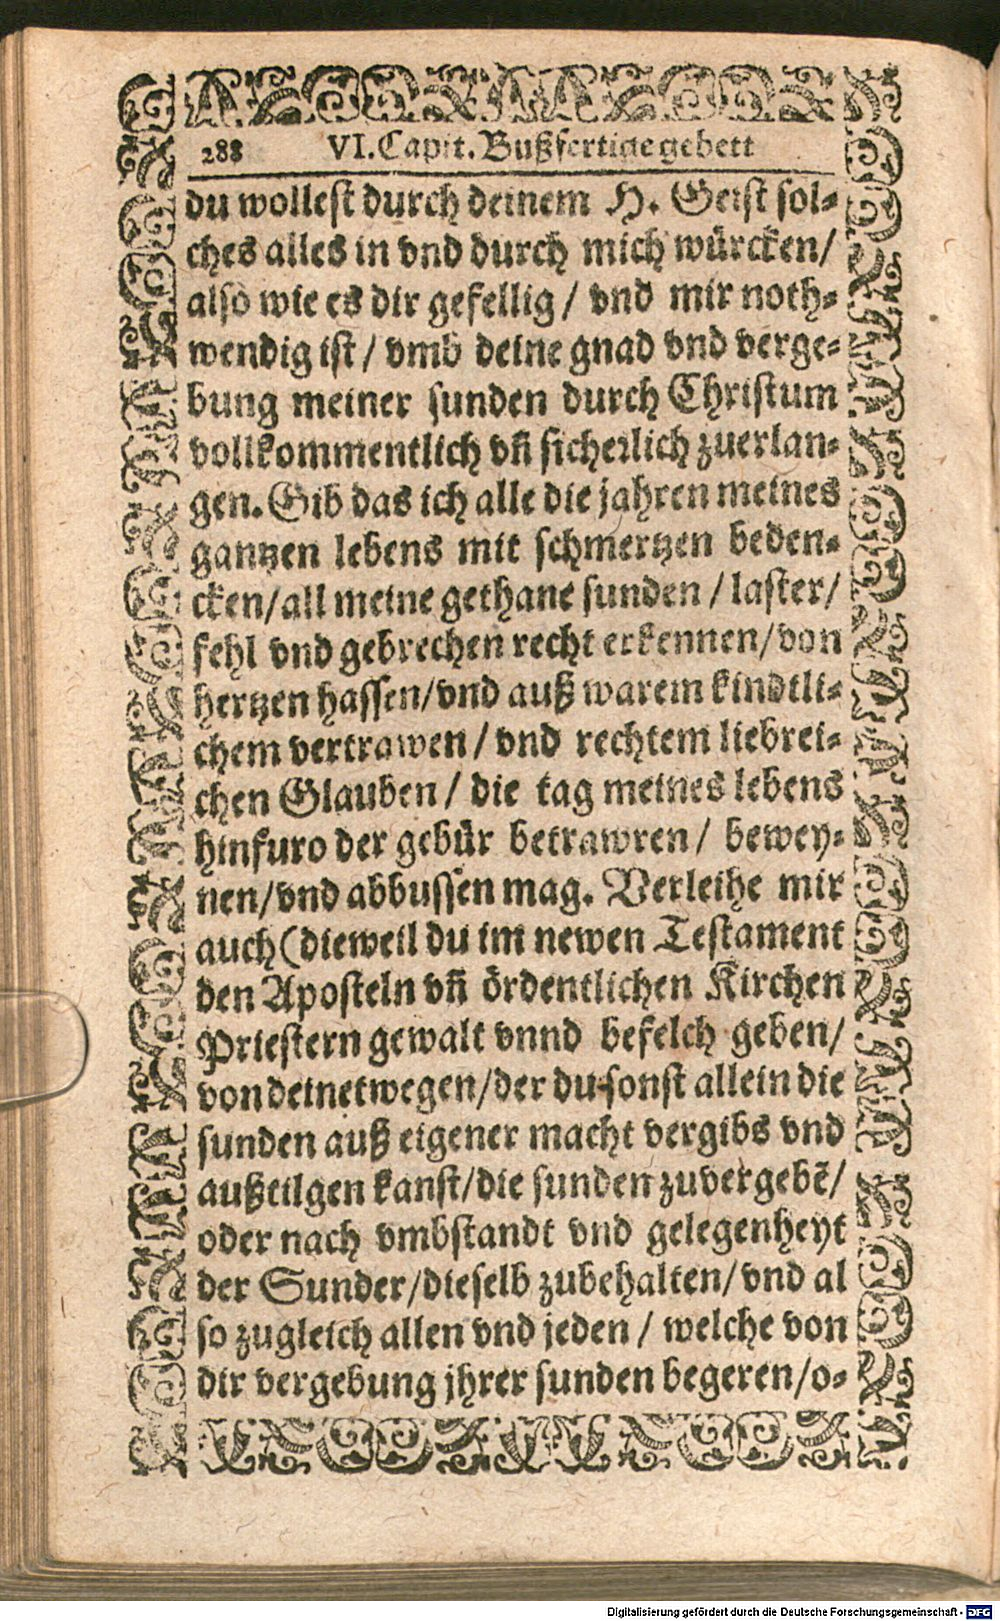 288 VI. Capit. Bußfertige gebett
du wollest durch deinem H. Geist sol-
ches alles in vnd durch mich würcken/
also wie es dir gefellig / vnd mir noth-
wendig ist / vmb deine gnad vnd verge-
bung meiner sunden durch Christum
vollkommentlich vñ sicherlich zuerlan-
gen. Gib das ich alle die jahren meines
gantzen lebens mit schmertzen beden-
cken/all meine gethane sunden / laster/
fehl vnd gebrechen recht erkennen/von
hertzen hassen/vnd auß warem kindtli-
chem vertrawen / vnd rechtem liebrei-
chen Glauben / die tag meines lebens
hinfuro der gebür betrawren / bewey-
nen/vnd abbussen mag. Verleihe mir
auch (dieweil du im newen Testament
den Aposteln vñ ördentlichen Kirchen
Priestern gewalt vnnd befelch geben/
von deinetwegen/der du sonst allein die
sunden auß eigener macht vergibs vnd
außtilgen kanst/die sunden zuvergebẽ/
oder nach vmbstandt vnd gelegenheyt
der Sunder/dieselb zubehalten/vnd al
so zugleich allen vnd jeden / welche von
dir vergebung jhrer sunden begeren/o-
Digitalisierung gefördert durch die Deutsche Forschungsgemeinschaft - DFG